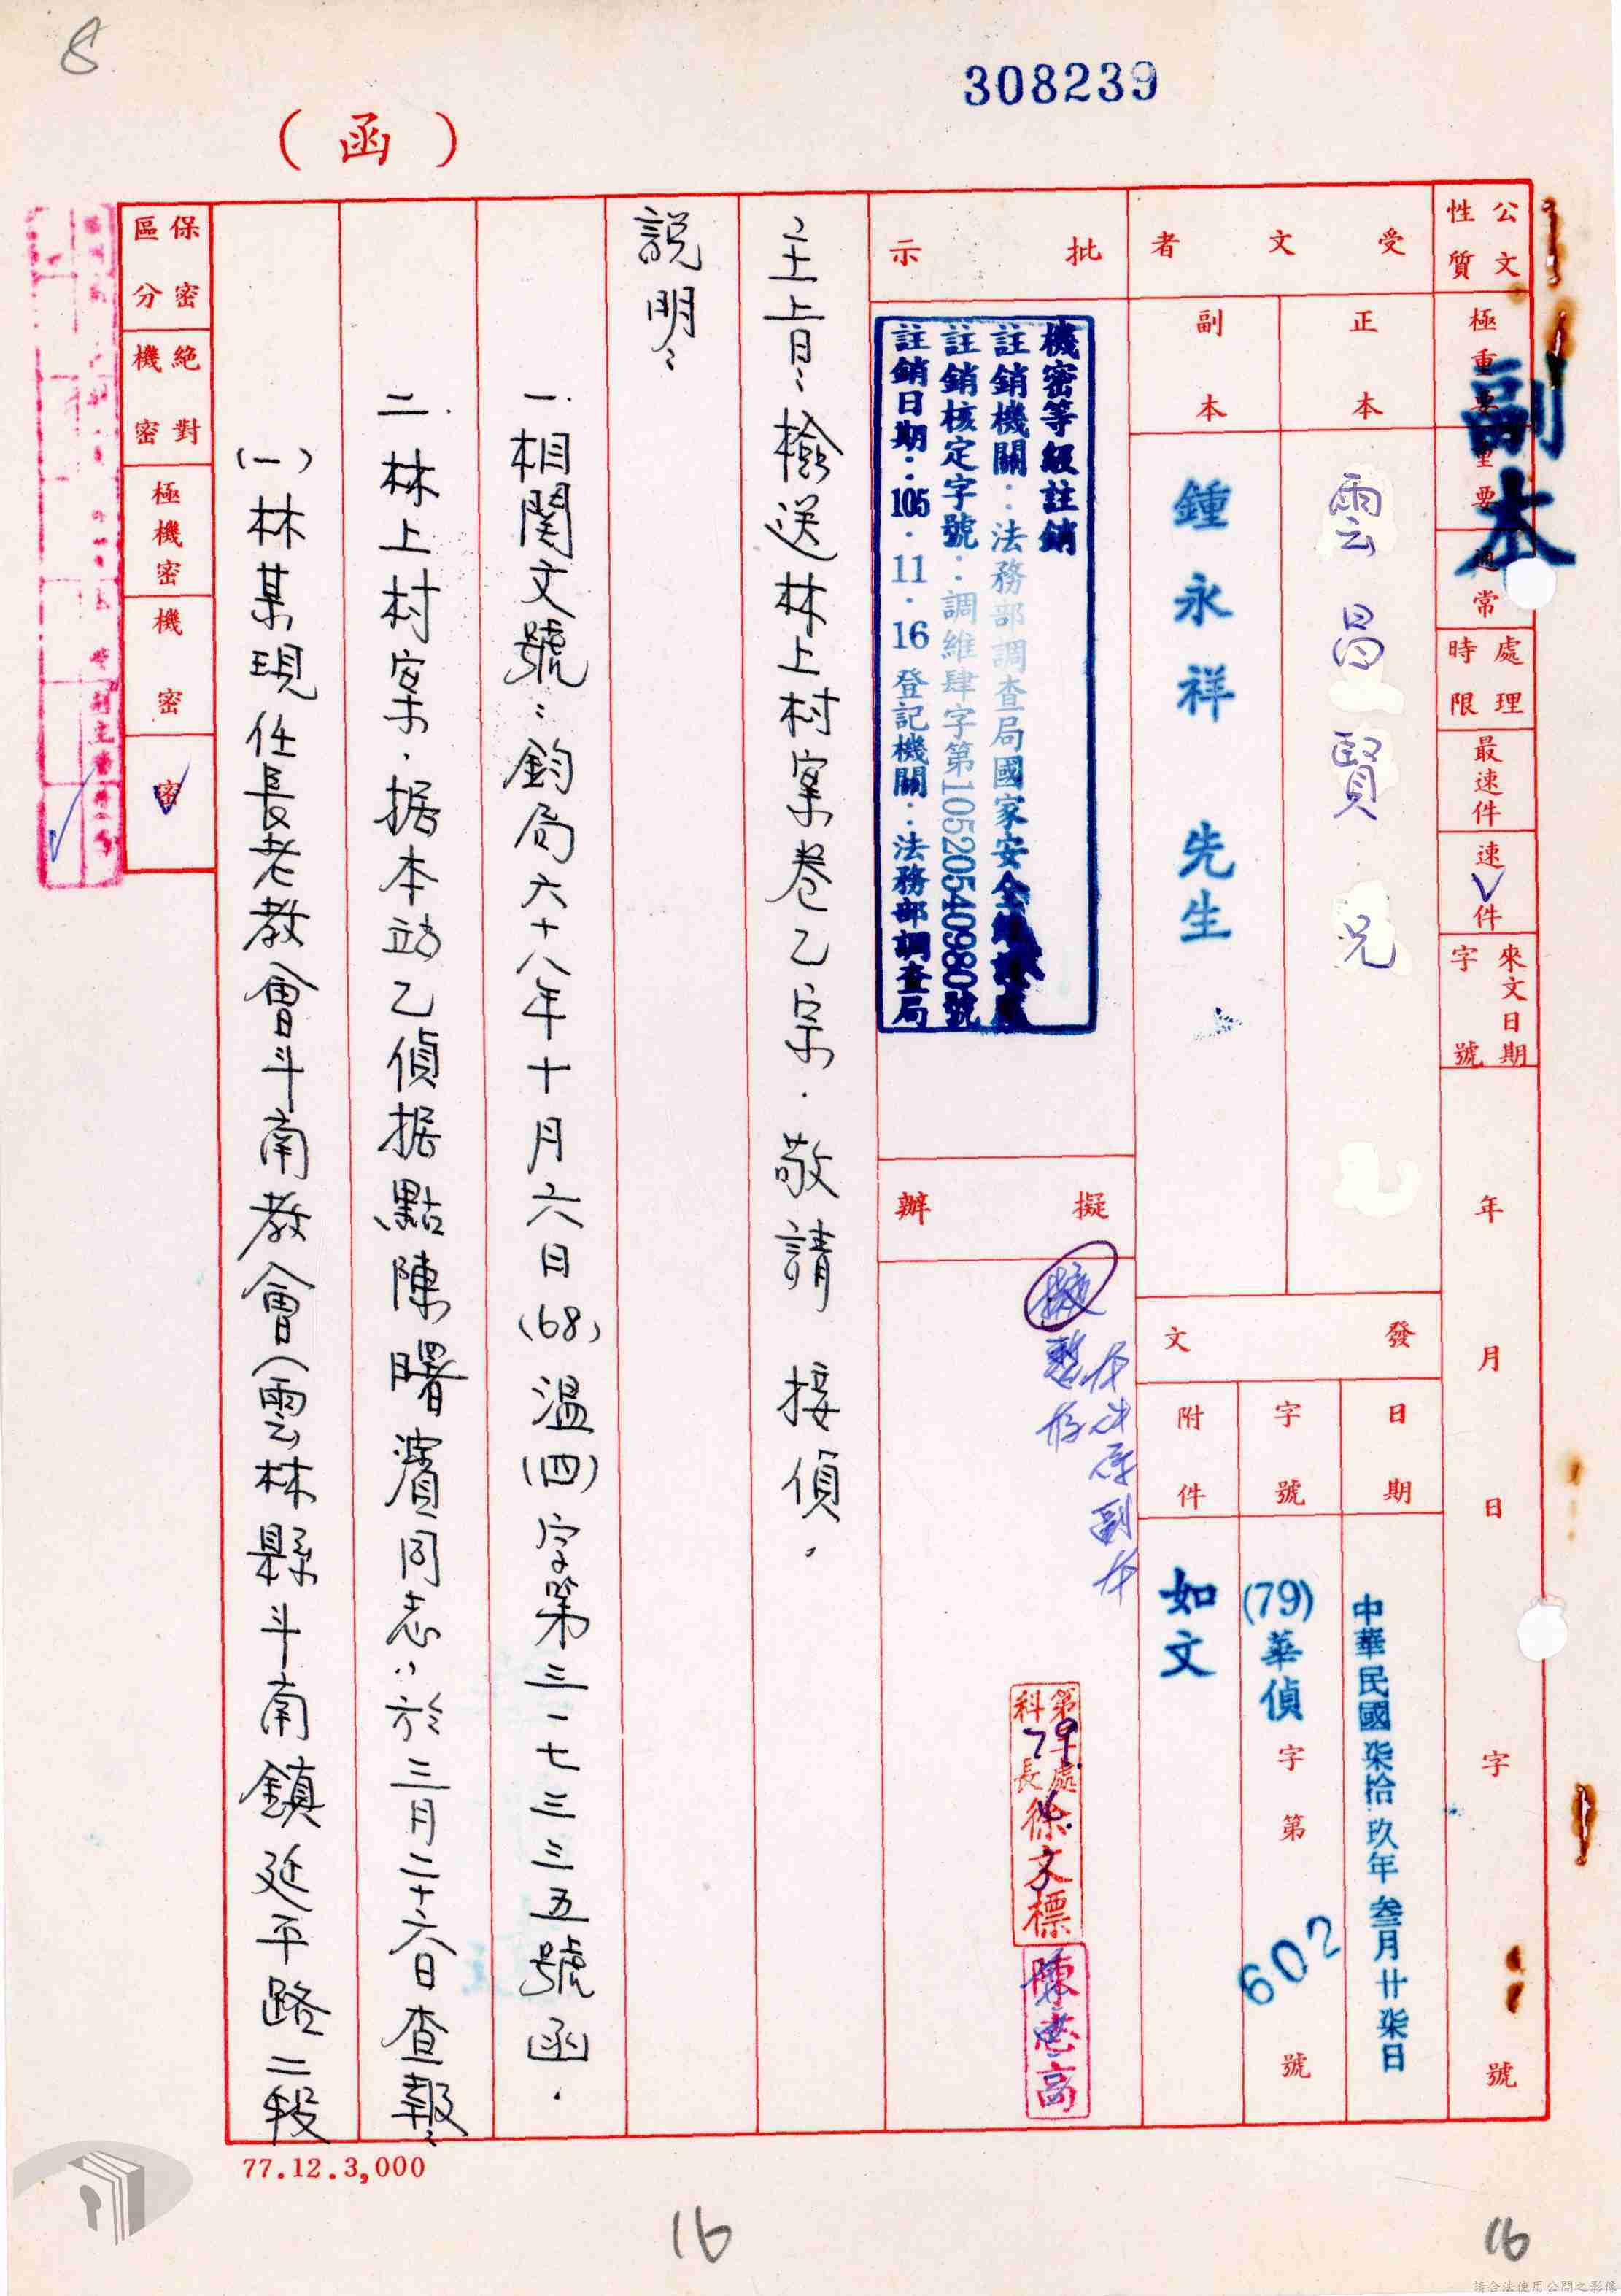 8
308239
（函）
副本
公文性質
極重要
重要
通常
處理時限
最速件
速件
來文日期字號
年 月 日 字 號
受文者
正本
雲昌賢兄
副本
鍾永祥 先生
發文
日期
中華民國柒拾玖年叁月廿柒日
字號
(79)華偵字第602號
附件
如文
批示
機密等級註銷
註銷機關：法務部調查局國家安全維護處
註銷核定字號：調維肆字第10520540980號
註銷日期：105．11．16登記機關：法務部調查局
擬辦
本件原副本
暫存
第 處
科長徐文標
79
陳志高
主旨：檢送林上村案卷乙宗．敬請 接偵．
說明：
一．相関文號：鈞局六十八年十月六日(68)溫(四)字第三一七三三五號函．
二．林上村案．据本站乙偵据點陳曙濱同志：於三月二十六日查報：
(一)林某現任長老教會斗南教會(雲林縣斗南鎮延平路二段
保密區分
絕對機密
極機密
機密
密
77.12.3,000
16
16
請合法使用公開之影像